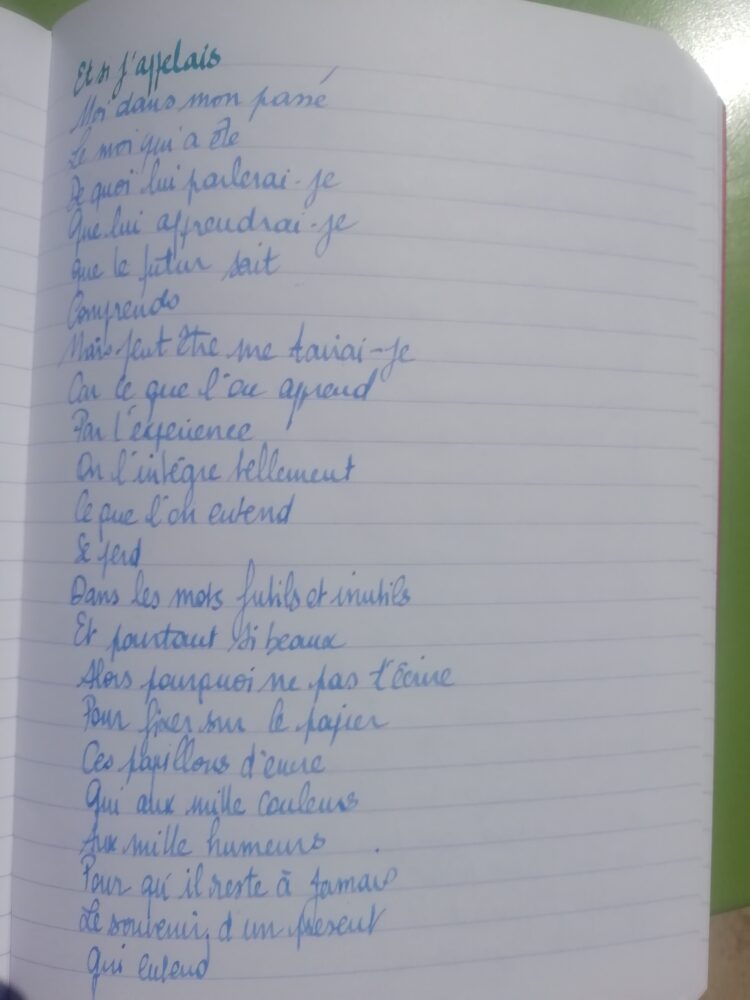 Et si j'appelais
Moi dans mon passé
Le moi qui a été
De quoi lui parlerai-je
Que lui apprendrai-je
Que le futur sait
Comprends
Mais peut être me tairai-je
Car ce que l'on apprend
Par l'expérience
On l'intègre tellement
Ce que l'on entend
Se perd
Dans les mots futils et inutils
Et pourtant si beaux
Alors pourquoi ne pas t'écrire
Pour fixer sur le papier
Ces papillons d'encre
Qui aux mille couleurs
Aux mille humeurs
Pour qu'il reste à jamais
Le souvenir d'un présent
Qui entend